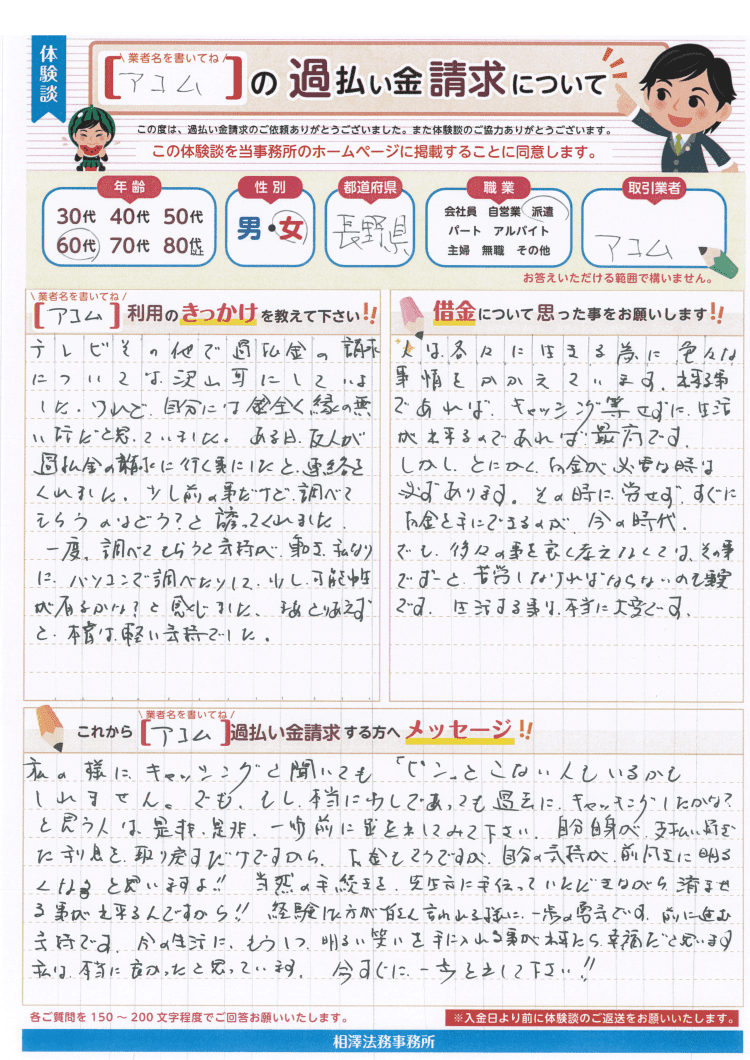 体験談
\ 業者名を書いてね /
[アコム]の 過払い金請求について
この度は、過払い金請求のご依頼ありがとうございました。また体験談のご協力ありがとうございます。
この体験談を当事務所のホームページに掲載することに同意します。
年齢 性別 都道府県 職業 取引業者
30代 40代 50代
60代 70代 80代以上
男・女
長野県
会社員 自営業 派遣
パート アルバイト
主婦 無職 その他
アコム
お答えいただける範囲で構いません。
\ 業者名を書いてね /
[アコム]利用のきっかけを教えて下さい!!
テレビその他で過払金の請求
については沢山耳にしていま
した。けれど、自分には全く縁の無
い話だと思っていました。ある日、友人が
過払金の請求に行く事にしたと、連絡を
くれました。少し前の事だけど、調べて
もらうのはどう?と誘ってくれました。
一度、調べてもらうと気持が、動き、私なり
に、パソコンで調べたりして、少し、可能性
が有るかな?と感じました、まあとりあえず
と、本当は、軽い気持でした。
借金について思った事をお願いします!!
人は、各々に生きる為に色々な
事情をかかえています。出来る事
であれば、キャッシング等せずに、生活
が出来るのであれば最高です。
しかし、とにかく、お金が必要な時は
必ずあります。その時に、労せず、すぐに
お金を手にできるのが、今の時代。
でも、後々の事を良く考えなくては、その事
でずーと、苦労しなければならないのも現実
です。生活する事は、本当に大変です。
\ 業者名を書いてね /
これから[アコム]過払い金請求する方へメッセージ!!
私の様に、キャッシングと聞いても「ピン」とこない人もいるかも
しれません。でも、もし、本当に少しであっても過去に、キャッチングしたかな?
と思う人は、是非、是非、一歩前に足を出してみて下さい。自分自身が、支払い過ぎ
た利息を、取り戻すだけですから、お金もそうですが、自分の気持が、前向きに明る
くなると思いますよ!!当然の手続きを、先生方に手伝っていただきながら、済ませ
る事が出来るんですから!!経験した方が皆さん言われる様に、一歩の勇気です。前に進む
気持です。今の生活に、もう1つ、明るい笑いを手に入れる事が出来たら、幸福だと思います
私は、本当に良かったと思っています。今すぐに、一歩を出して下さい!!
各ご質問を150～200文字程度でご回答お願いいたします。
※入金日より前に体験談のご返送をお願いいたします。
相澤法務事務所